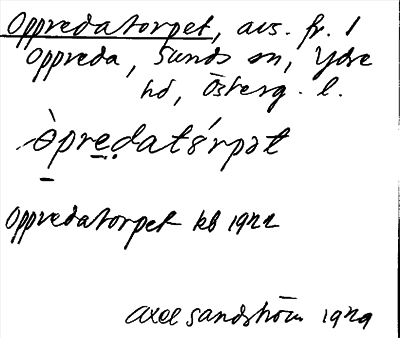 Oppredatorpet, avs. fr. 1
Oppreda, Sunds sn, Ydre
hd, Österg. l.
 òpredatórpət
Oppredatorpet kb 1922
Axel Sandström 1929